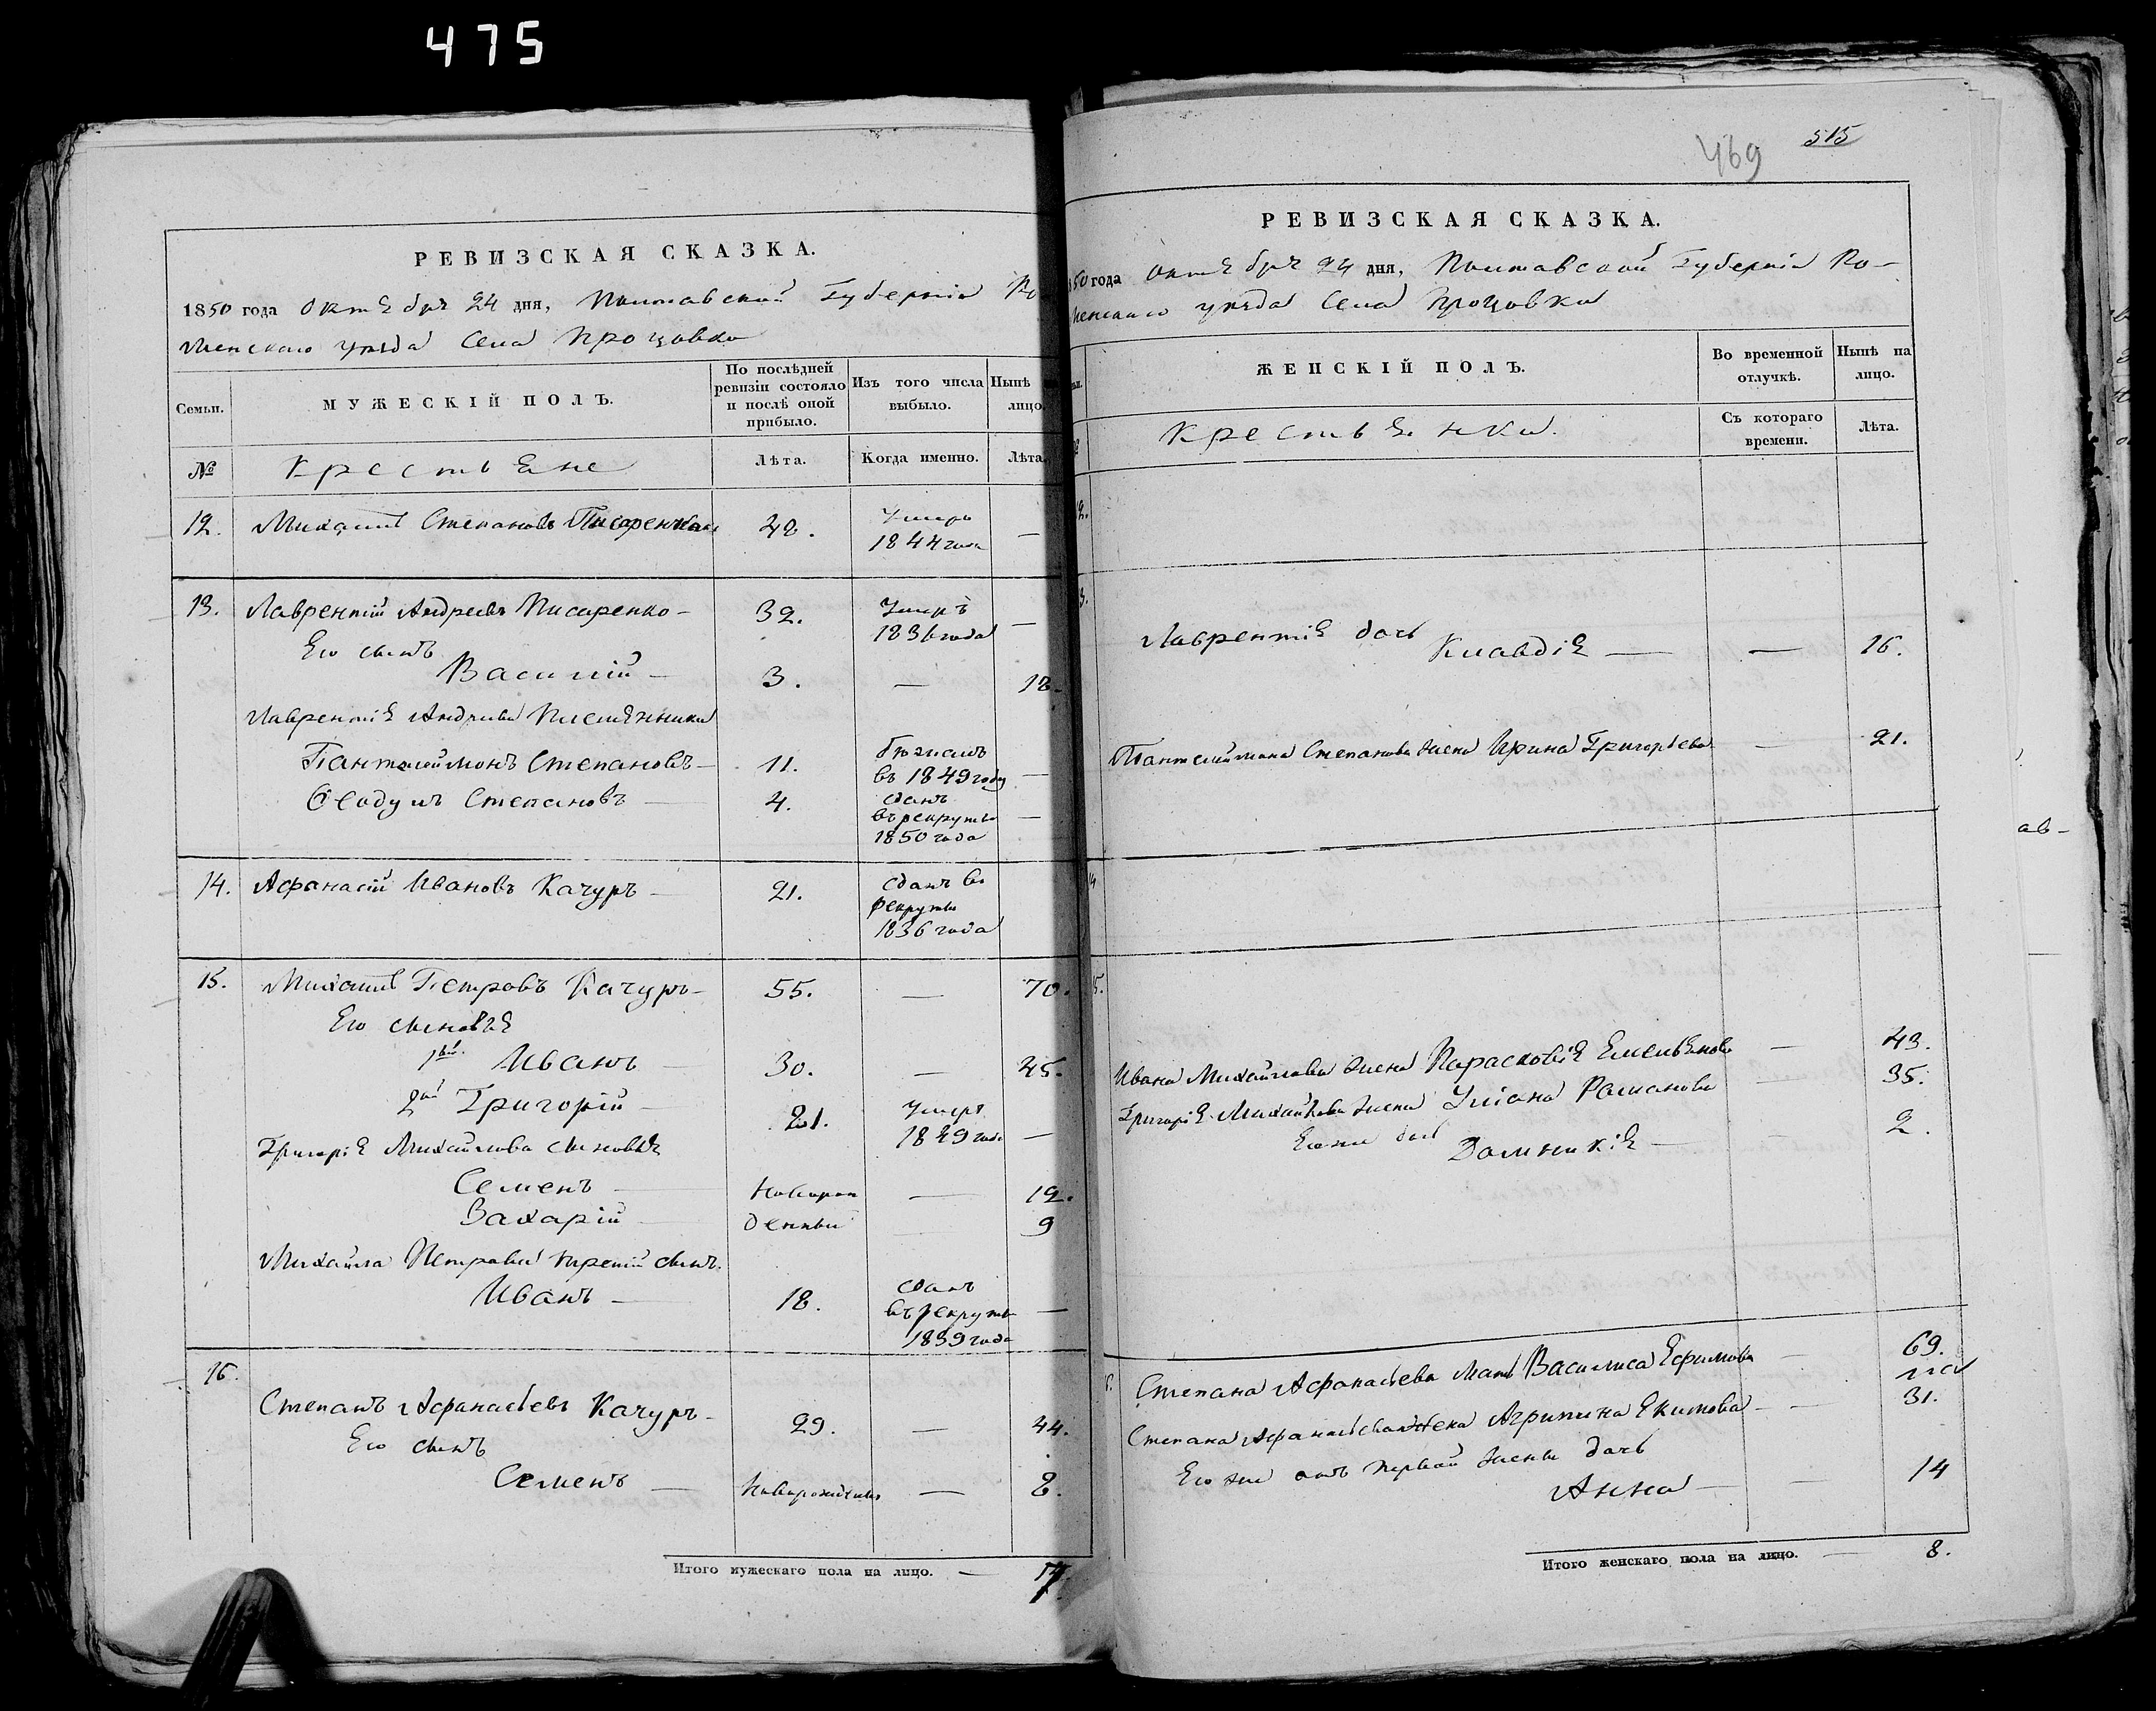 475
РЕВИЗСКАЯ СКАЗКА.
1850 года октября 24 дня, Полтавской Губернiи Ро
менскаго уѣзда села Процовки
Семьи.
МУЖЕСКIЙ ПОЛЪ.
По послѣдней ревизiи состояло и послѣ оной прибыло.
Изъ того числа выбыло.
Нынѣ
лицо.
№
Крестьяне
Лѣта.
Когда именно.
Лѣта.
12. Михаилъ Степановъ Писаренко 42. Умеръ —
1844 года
13. Лаврентiй Андреевъ Писаренко — 32. Умеръ —
1836 года
Его сынъ
Василiй — 3. — 18.
Лаврентiя Андреева племянники
Пантелиймонъ Степановъ — 11. бѣжалъ —
въ 1849 году
Ѳеодулъ Степановъ — 4. сданъ —
въ рекруты
1850 года
14. Афанасiй Ивановъ Качуръ — 21. сданъ въ
рекруты
1836 года
15. Михаилъ Петровъ Качуръ — 55. — 70.
Его сыновья
1вый. Иванъ — 30. — 45.
2й Григорiй — 21. Умеръ —
1849 года
Григорiя Михайлова сыновья
Семенъ — новорож — 12.
Захарiй — денный 9
Михайла Петрова третiй сынъ
Иванъ — 18. сданъ —
въ рекруты
1839 года
16.
Степанъ Афанасьевъ Качуръ — 29. — 44.
Его сынъ
Семенъ — новорожденный — 8.
Итого мужескаго пола на лицо. — 7.
469 515
РЕВИЗСКАЯ СКАЗКА.
850 года октября 24 дня, Полтавской Губернiи Ро-
менскаго уѣзда села Процовки
ЖЕНСКIЙ ПОЛЪ.
Во временной отлучкѣ.
Нынѣ на лицо.
Крестьянки.
Съ котораго времени.
Лѣта.
12.
13.
Лаврентiя дочь
Клавдiя — — 16.
Пантелиймона Степанова жена Ирина Григорьева — 21.
14
15.
Ивана Михайлова жена Парасковiя Емельянова — 43.
Григорiя Михайлова жена Улiана Романова — 35.
Его же дочь
Домникiя — 2.
Степана Афанасьева мать Василиса Ефимова — 69.
Степана Афанасьева жена Агрипина Екимова — 31.
Его же отъ первой жены дочь
Анна — — 14
Итого женскаго пола на лицо. — 8.
ав-